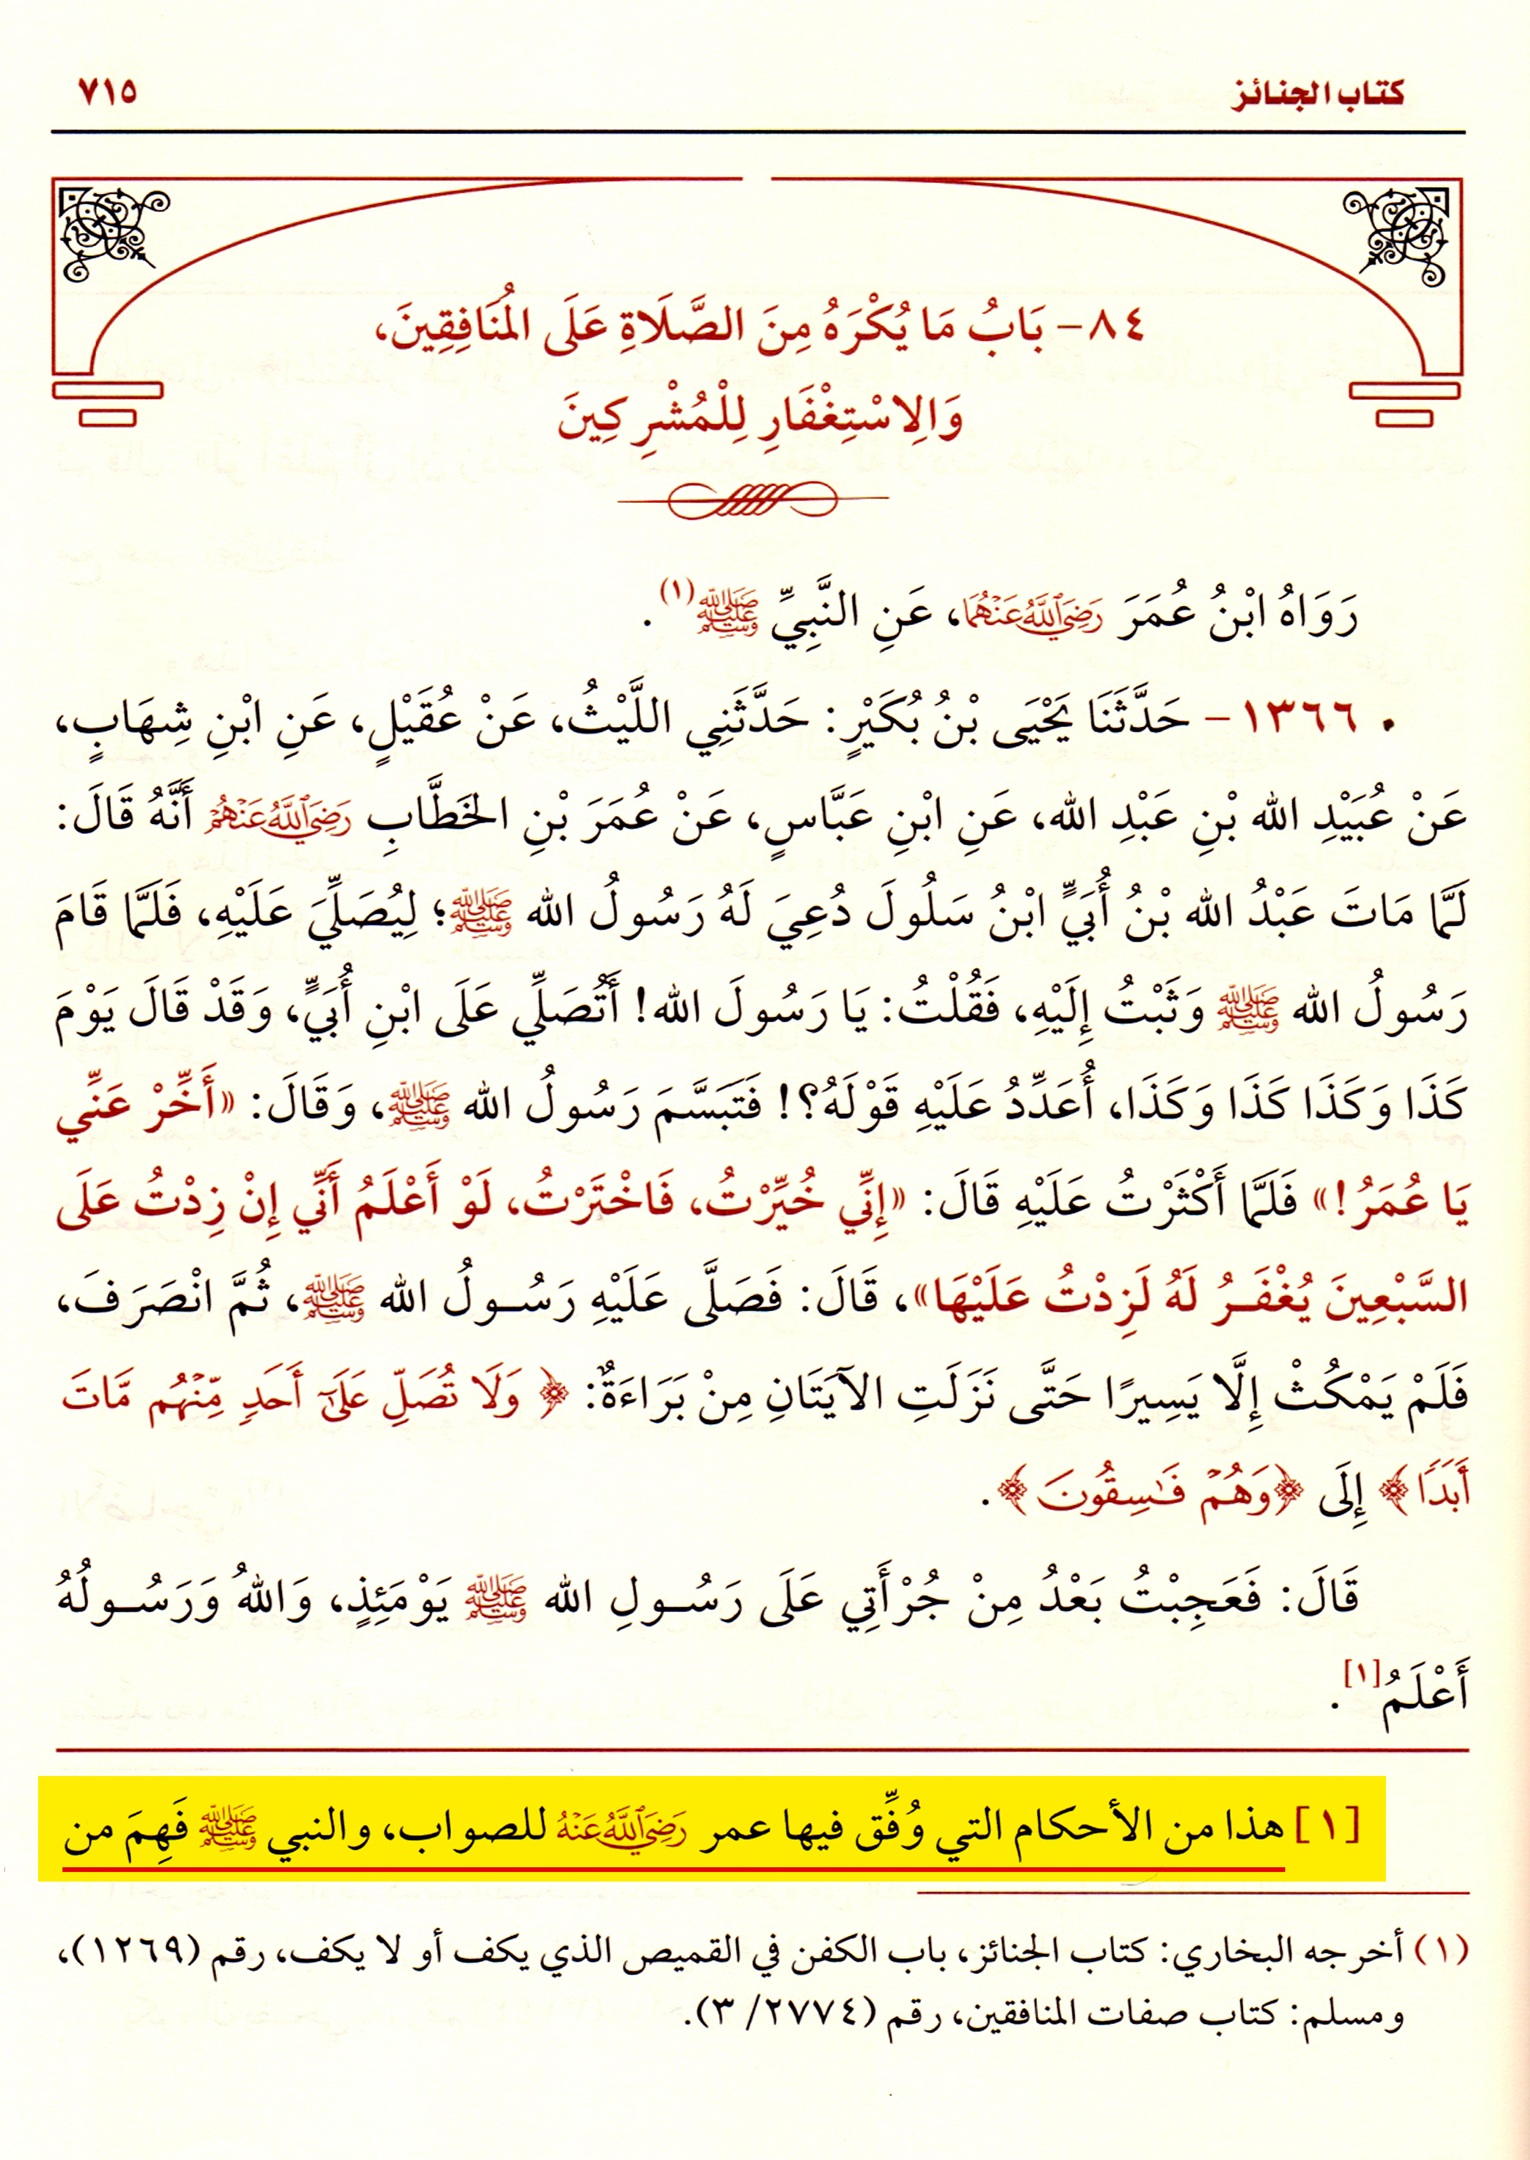 كتاب الجنائز
٧١٥
٨٤- بَابُ مَا يُكْرَهُ مِنَ الصَّلَاةِ عَلَى المُنَافِقِينَ،
وَالِاسْتِغْفَارِ لِلْمُشْرِكِينَ
رَوَاهُ ابْنُ عُمَرَ رَضِيَ اللَّهُ عَنْهُمَا، عَنِ النَّبِيِّ ﷺ(١).
• ١٣٦٦ - حَدَّثَنَا يَحْيَى بْنُ بُكَيْرٍ: حَدَّثَنِي اللَّيْثُ، عَنْ عُقَيْلٍ، عَنِ ابْنِ شِهَابٍ،
عَنْ عُبَيْدِ الله بْنِ عَبْدِ الله، عَنِ ابْنِ عَبَّاسٍ، عَنْ عُمَرَ بْنِ الخَطَّابِ رَضِيَ اللَّهُ عَنْهُمْ أَنَّهُ قَالَ:
لَمَّا مَاتَ عَبْدُ الله بْنُ أُبَيٍّ ابْنُ سَلُولَ دُعِيَ لَهُ رَسُولُ الله ﷺ؛ لِيُصَلِّيَ عَلَيْهِ، فَلَمَّا قَامَ
رَسُولُ الله ﷺ وَثَبْتُ إِلَيْهِ، فَقُلْتُ: يَا رَسُولَ الله! أَتُصَلِّي عَلَى ابْنِ أُبَيٍّ، وَقَدْ قَالَ يَوْمَ
كَذَا وَكَذَا كَذَا وَكَذَا، أُعَدِّدُ عَلَيْهِ قَوْلَهُ؟! فَتَبَسَّمَ رَسُولُ الله ﷺ، وَقَالَ: «أَخِّرْ عَنِّي
يَا عُمَرُ!» فَلَمَّا أَكْثَرْتُ عَلَيْهِ قَالَ: «إِنِّي خُيِّرْتُ، فَاخْتَرْتُ، لَوْ أَعْلَمُ أَنِّي إِنْ زِدْتُ عَلَى
السَّبْعِينَ يُغْفَرُ لَهُ لَزِدْتُ عَلَيْهَا»، قَالَ: فَصَلَّى عَلَيْهِ رَسُولُ الله ﷺ، ثُمَّ انْصَرَفَ،
فَلَمْ يَمْكُثْ إِلَّا يَسِيرًا حَتَّى نَزَلَتِ الآيَتَانِ مِنْ بَرَاءَةٌ: ﴿وَلَا تُصَلِّ عَلَىٰٓ أَحَدٖ مِّنۡهُم مَّاتَ
أَبَدٗا﴾ إِلَى ﴿وَهُمۡ فَٰسِقُونَ﴾.
قَالَ: فَعَجِبْتُ بَعْدُ مِنْ جُرْأَتِي عَلَى رَسُولِ الله ﷺ يَوْمَئِذٍ، وَاللهُ وَرَسُولُهُ
أَعْلَمُ[١].
[١] هذا من الأحكام التي وُفِّق فيها عمر رَضِيَ اللَّهُ عَنْهُ للصواب، والنبي ﷺ فَهِمَ من
(١) أخرجه البخاري: كتاب الجنائز، باب الكفن في القميص الذي يكف أو لا يكف، رقم (١٢٦٩)،
ومسلم: كتاب صفات المنافقين، رقم (٢٧٧٤/ ٣).